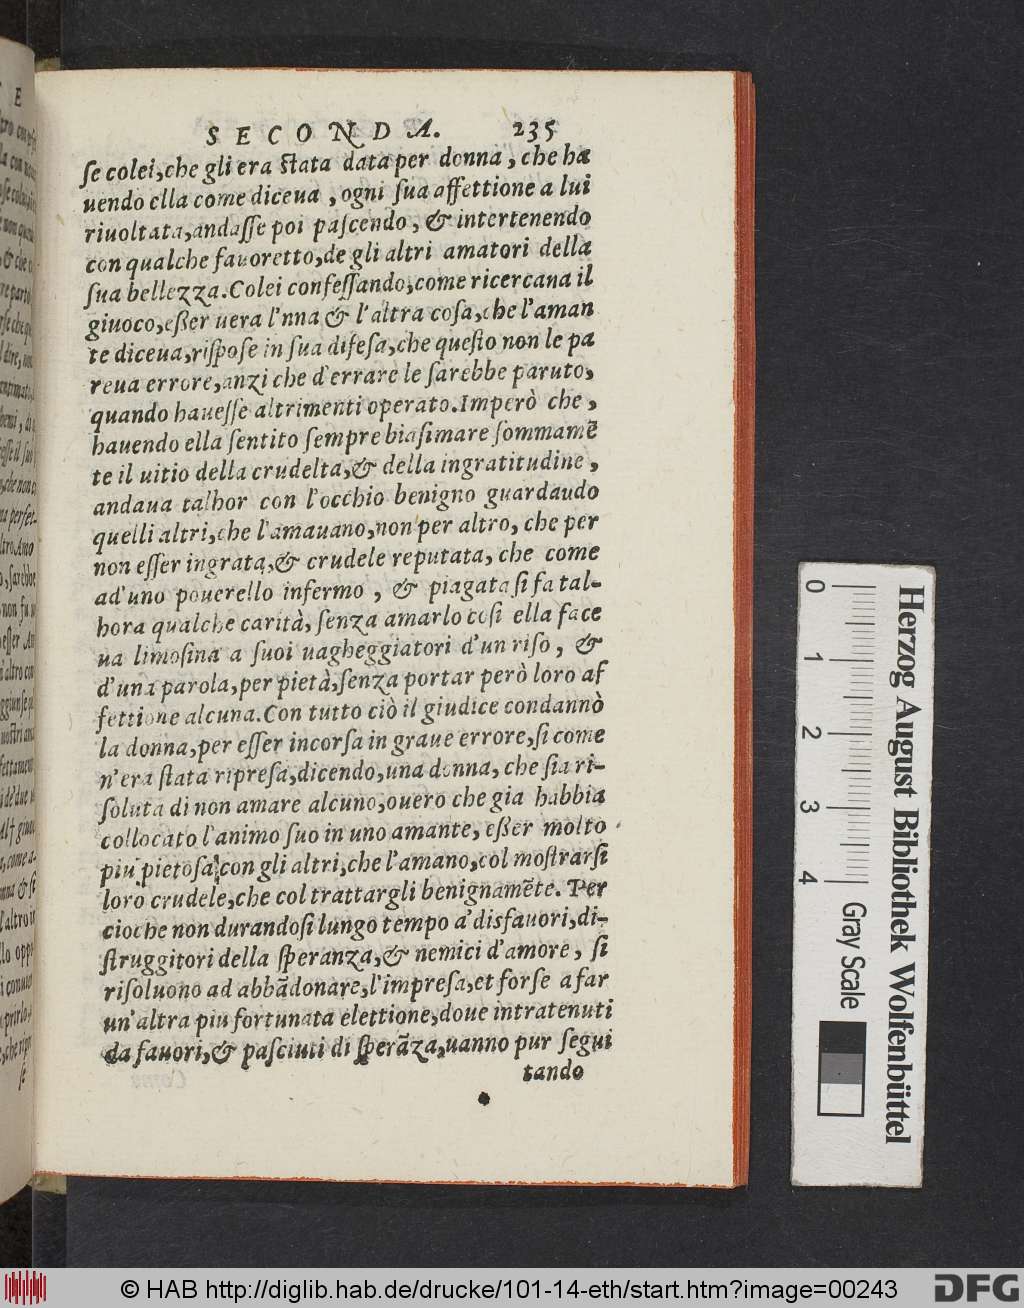 SECONDA. 235
se colei, che gli era stata data per donna, che ha
uendo ella come diceua, ogni sua affettione a lui
riuoltata, andasse poi pascendo, & intertenendo
con qualche fauoretto, de gli altri amatori della
sua bellezza. Colei confessando, come ricercana il
giuoco, eßer uera l'nna & l'altra cosa, che l'aman
te diceua, rispose in sua difesa, che questo non le pa
reua errore, anzi che d'errare le sarebbe paruto,
quando hauesse altrimenti operato. Imperò che,
hauendo ella sentito sempre biasimare sommamẽ
te il uitio della crudelta, & della ingratitudine,
andaua talhor con l'occhio benigno guardaudo
quelli altri, che l'amauano, non per altro, che per
non esser ingrata, & crudele reputata, che come
ad'uno pouerello infermo, & piagata si fa tal-
hora qualche carità, senza amarlo cosi ella face
ua limosina a suoi uagheggiatori d'un riso, &
d'una parola, per pietà, senza portar però loro af
fettione alcuna. Con tutto ciò il giudice condannò
la donna, per esser incorsa in graue errore, si come
n'era stata ripresa, dicendo, una donna, che sia ri-
soluta di non amare alcuno, ouero che gia habbia
collocato l'animo suo in uno amante, eßer molto
piu pietosa, con gli altri, che l'amano, col mostrarsi
loro crudele, che col trattargli benignamẽte. Per
cioche non durandosi lungo tempo a' disfauori, di-
struggitori della speranza, & nemici d'amore, si
risoluono ad abbãdonare, l'impresa, et forse a far
un'altra piu fortunata elettione, doue intratenuti
da fauori, & pasciuti di sperãza, uanno pur segui
tando
Herzog August Bibliothek Wolfenbüttel
0 1 2 3 4
Gray Scale
© HAB http://diglib.hab.de/drucke/101-14-eth/start.htm?image=00243
DFG